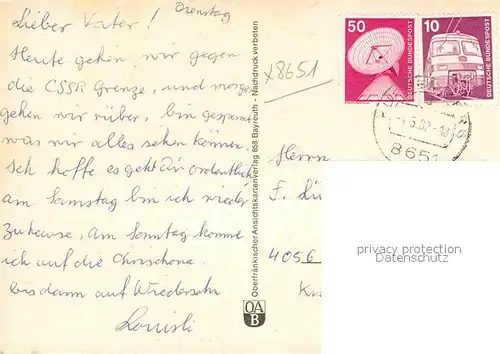 Dienstag
Lieber Vater!
Heute gehen wir gegen
die CSSR Grenze, und morgen
gehen wir rüber, bin gespannt
was wir alles sehen können.
Ich hoffe es geht dir ordentlich
am Samstag bin ich wieder
zuhause, am Sonntag komme
ich auf die Chrischona
bis dann auf Wiedersehn
Louisli
x8651
Oberfränkischer Ansichtskartenverlag 858 Bayreuth - Nachdruck verboten
OA
B
50
DEUTSCHE BUNDESPOST
10
DEUTSCHE BUNDESPOST
.5.82-18
8651
Herrn
F.
4056
privacy protection
Datenschutz